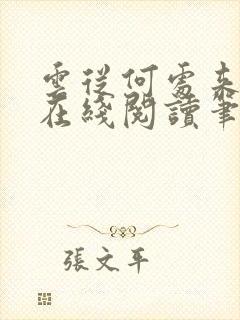 雲從何處來
在綫閱讀筆
張文平